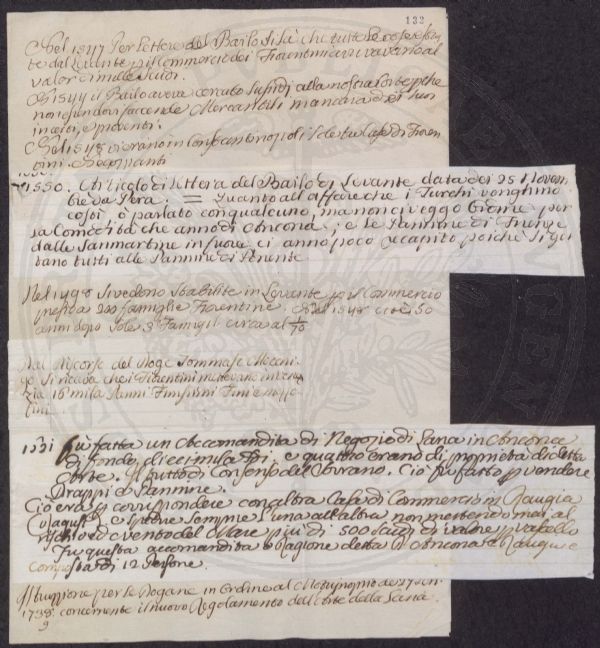 132
Nel 1547 Per lettere del Bailo si sà che tutte le
te del Levante p il Commercio dei Fiorentini arrivavano al
valor di mille Scudi.
Nel 1544 il Bailo aveva cercato Sussidi alla nostra Corte pche
non essendovi faccende Mercantili mancava dei suoi
incerti, e proventi.
Nel 1548 vi erano in Constantinopoli Sole tre Case di Fioren
tini Negozianti
1550. Articolo di lettera del Bailo di Levante data dei 25 Novem
bre da Pera. = Quanto all'affare che i Turchi venghino
costi, ò parlato con qualcuno, ma non ci veggo ordine per
la Comodità che anno di Ancona, e le Pannine di Firenze
dalle Sanmartine in fuore ci anno poco ricapito, poiche si gut
tano tutti alle Pannine di Ponente.
Nel 1498 si vedono stabilite in Levante p il Commercio
presso 200 famiglie Fiorentine. Nel 1548 cioè 50
anni dopo sole 3 Famigl. circa al 1/70
Nel Discorso del Doge Tommaso Moceni
go si ricava che i Fiorentini mettevano in Vene
zia 16 mila Panni Finissimi Fini e
tini.
1551 Fù fatta un Accomandita di Negozio di Lana in Ancona
di fondo dieci mila e quattro erano di proprietà di detta
Corte. Il tutto di Consenso del Sovrano. Ciò fù fatto p vendere
Drappi e Pannine.
Ciò era p corrispondere con altra Casa di Commercio in Raugia
(Ragusi) e spedire Somme l'una all'altra non mettendo mai al
rischio ed evento del Mare più di 500 Scudi di valore p vascello
Fu questa accomandita o Ragione detta d'Ancona e Raugia
Composta di 12 Persone.
Istruzione per le Dogane in Ordine al Motuproprio de
1738. concernente il nuovo Regolamento dell'Arte della Lana.
9